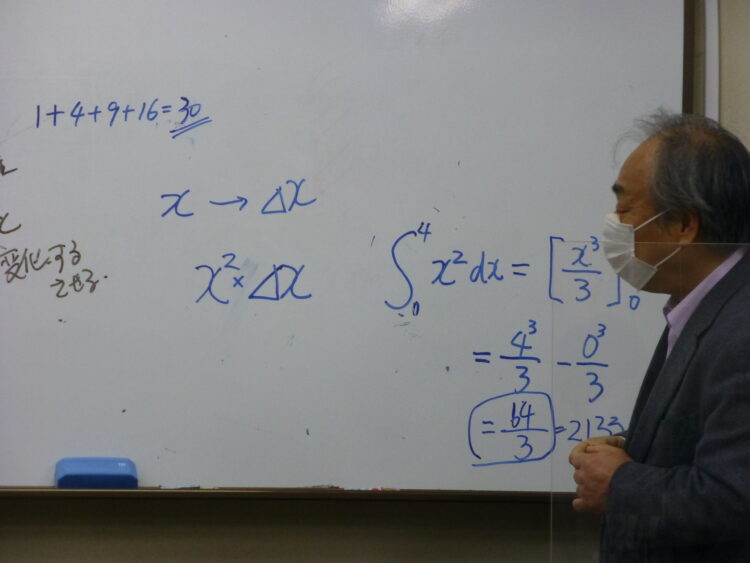 1+4+9+16=30
x
変化する
させる.
x → Δx
x² × Δx
∫₀⁴ x² dx = [x³/3]₀
= 4³/3 - 0³/3
= 64/3 = 2133